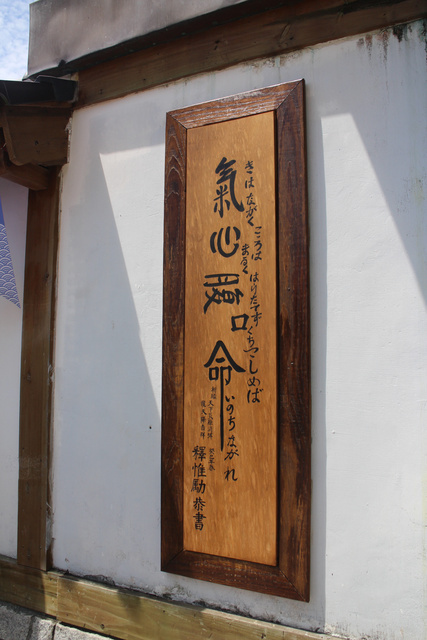 氣心腹口命
きはながく
こころはまるく
はらたてず
くちつゝしめば
いのちながれ
釋惟勵恭書